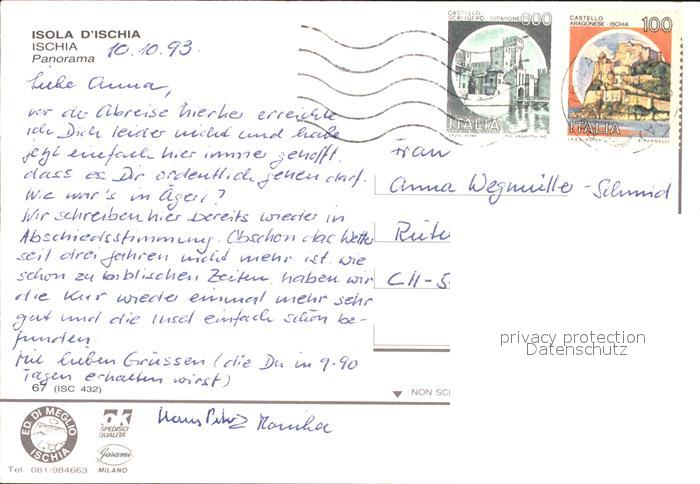 ISOLA D'ISCHIA
ISCHIA
Panorama
10.10.93.
CASTELLO
SCALIGERO - SIRMIONE
600
ITALIA
CASTELLO
ARAGONESE - ISCHIA
100
ITALIA
Liebe Anna,
vor der Abreise hierher erreichte
ich Dich leider nicht und habe
jetzt einfach hier immer gehofft,
dass es Dir ordentlich gehen darf.
Wie war's in Ägeri?
Wir schreiben hier bereits wieder in
Abschiedsstimmung. Obschon das Wetter
seit drei Jahren nicht mehr ist wie
schon zu biblischen Zeiten, haben wir
die Kur wieder einmal mehr sehr
gut und die Insel einfach schön be-
funden.
Mit lieben Grüssen (die Du in 9-90
Tagen erhalten wirst)
Monika
Frau
Anna Wegmüller-Schmid
CH-5
privacy protection
Datenschutz
67 (ISC 432)
NON SC
ED. DI MEGLIO
ISCHIA
SPEDISCI
QUALITÀ
Garami
MILANO
Tel. 081/984663